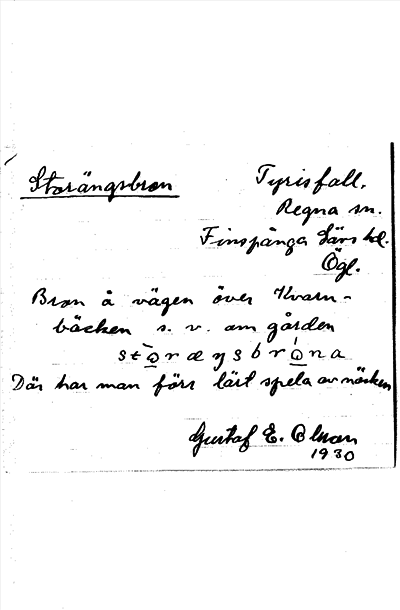 Storängsbron
Tyrisfall.
Regna sn.
Finspånga läns hd.
Ögl.
Bron å vägen över Kvarn-
bäcken s. v. om gården
stò̲ræŋsbró̲na
Där har man förr lärt spela av näcken
Gustaf E. Olsson
1930